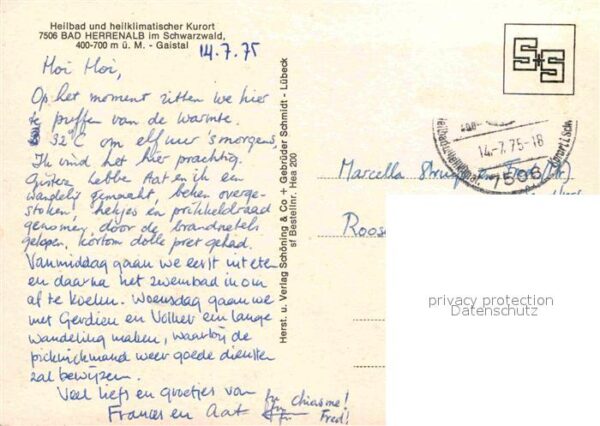 Heilbad und heilklimatischer Kurort
7506 BAD HERRENALB im Schwarzwald,
400-700 m ü. M. - Gaistal
14.7.75
Hoi Hoi,
Op het moment zitten we hier
te puffen van de warmte.
32°C om elf uur 's morgens,
Ik vind het hier prachtig.
Gisteren hebbe Aat en ik een
wandeling gemaakt, beken overge-
stoken, hekjes en prikkeldraad
genomen, door de brandnetels
gelopen, kortom dolle pret gehad.
Vanmiddag gaan we eerst uit eten
en daarna het zwembad in om
af te koelen. Woensdag gaan we
met Gerdien en Volker een lange
wandeling maken, waarbij de
picknickmand weer goede diensten
zal bewijzen.
Veel liefs en groetjes van
Frances en Aat
chiasme!
Fred!
Herst. u. Verlag Schöning & Co + Gebrüder Schmidt - Lübeck
sf Bestellnr. Hea 200
S+S
14.-7.75-18
7506
Marcella
Roos
privacy protection
Datenschutz